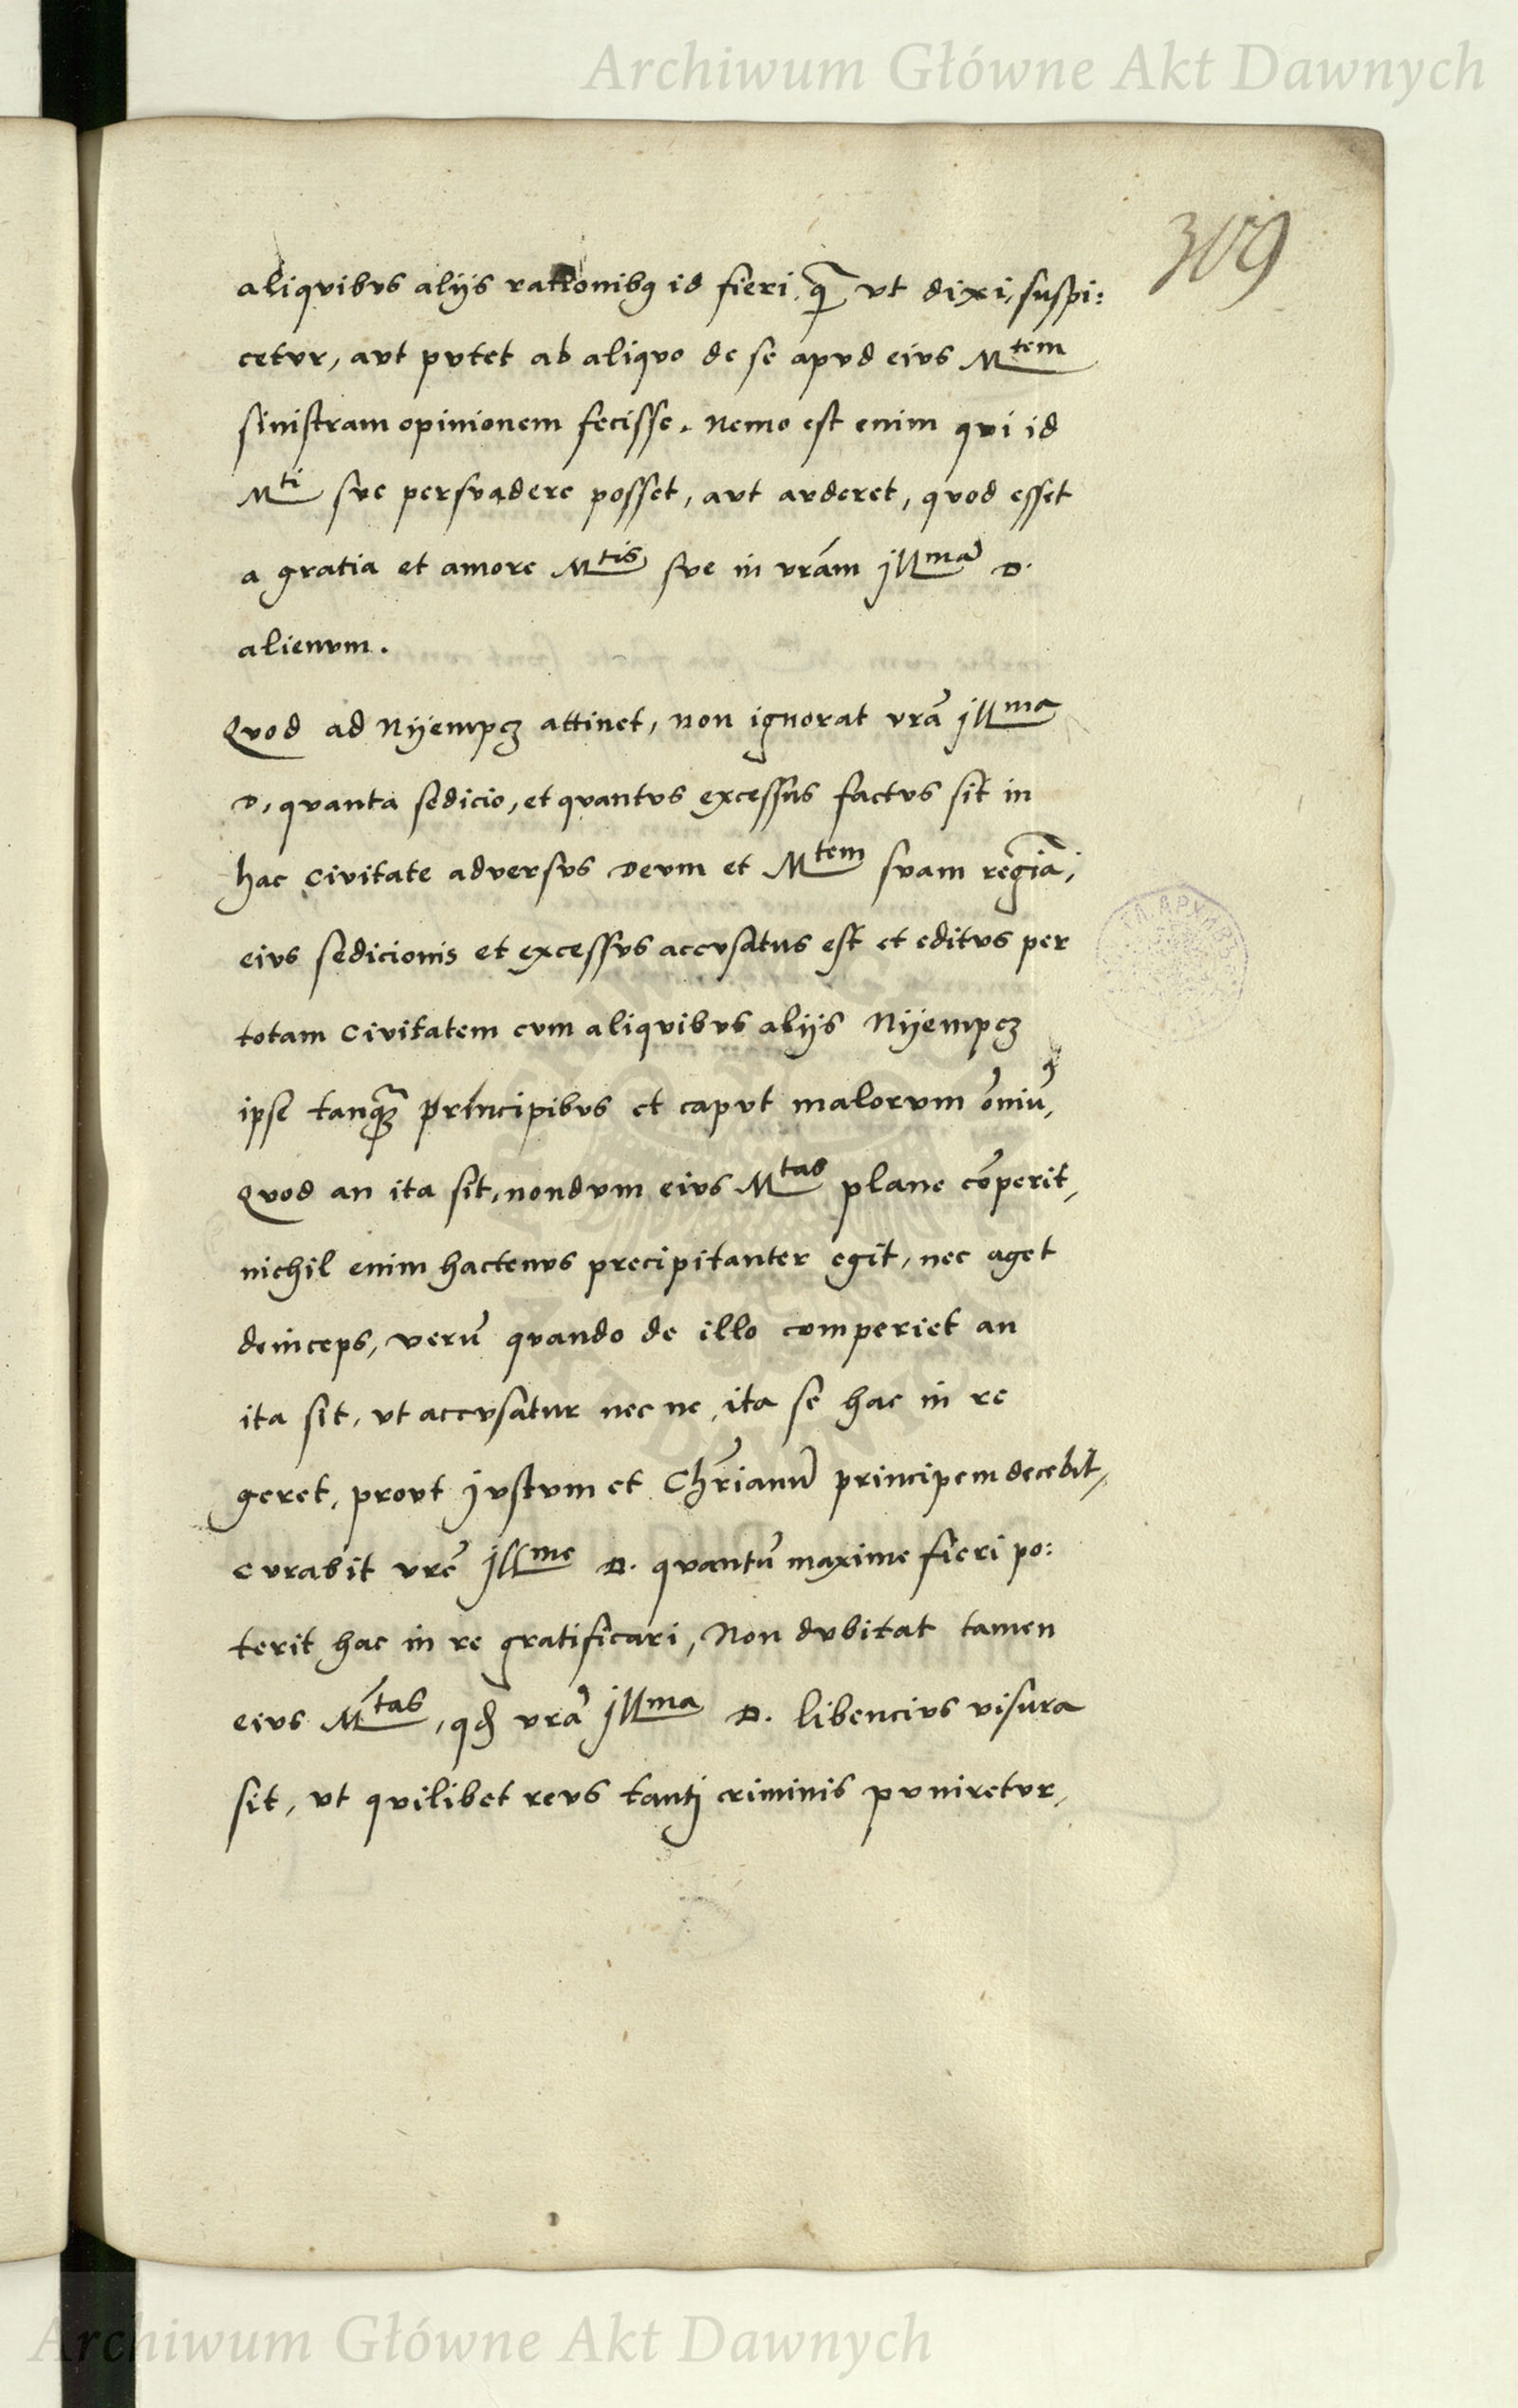 Archiwum Główne Akt Dawnych
309
aliquibus alijs rationibꝯ id fieri, qᷓ ut dixi, suspi:
cetur, aut putet ab aliquo de se apud eius Mtem
sinistram opinionem fecisse. Nemo est enim qui id
Mti sue persuadere posset, aut auderet, quod esset
a gratia et amore Mtis sue in vrām Jllmā D.
alienum.
Quod ad Nÿempcz attinet, non ignorat vrā Jllma
D, quanta sedicio, et quantus excessus factus sit in
hac Civitate adversus Deum et Mtem suam regiā,
eius sedicionis et excessus accusatus est et editus per
totam Civitatem cum aliquibus alijs Nÿempcz
ipse tanqꝫ principibus et caput malorum oīniū,
Quod an ita sit, nondum eius Mtas plane cōperit,
nichil enim hactenus precipitanter egit, nec aget
deinceps, verū quando de illo comperiet an
ita sit, ut accusatur nec ne, ita se hac in re
geret, prout justum et Chrianū principem decebit,
curabit vrē Jllme D. quantū maxime fieri po:
terit hac in re gratificari, Non dubitat tamen
eius Mtas, qd vrā Jllma D. libencius visura
sit, ut quilibet reus tantj criminis puniretur,
Archiwum Główne Akt Dawnych